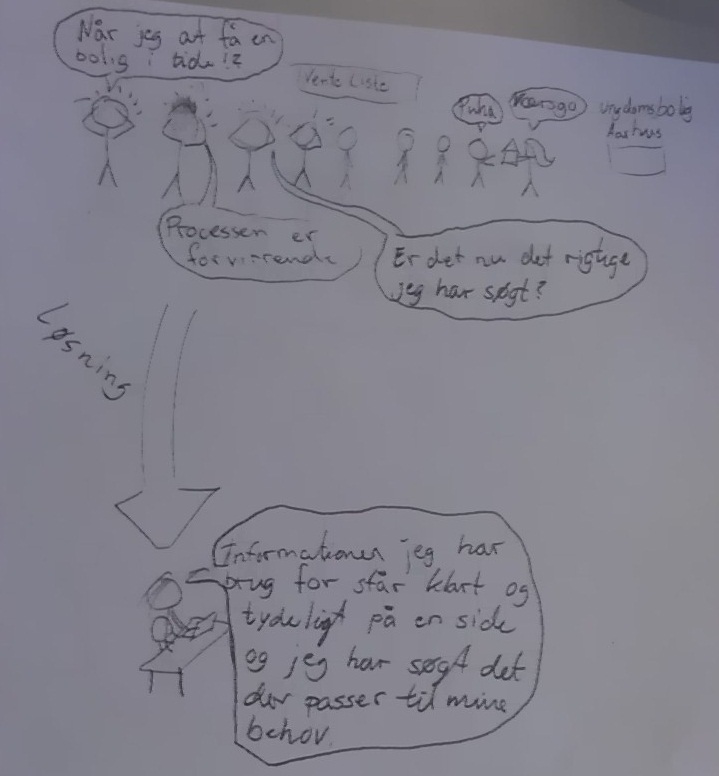 Når jeg at få en
bolig i tide!?
Venteliste
Puha
Værsgo
ungdomsbolig
Aarhus
Processen er
forvirrende
Er det nu det rigtige
jeg har søgt?
Løsning
Informationen jeg har
brug for står klart og
tydeligt på en side
og jeg har søgt det
der passer til mine
behov.